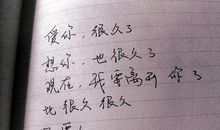 爱你，很久了
想你，也很久了
现在，我要离开 你了
比很久很久